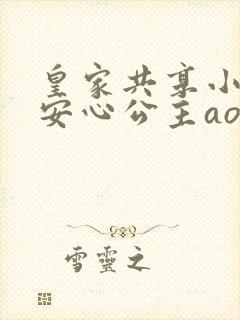 皇家共享小
安心公主ao
雪靈之